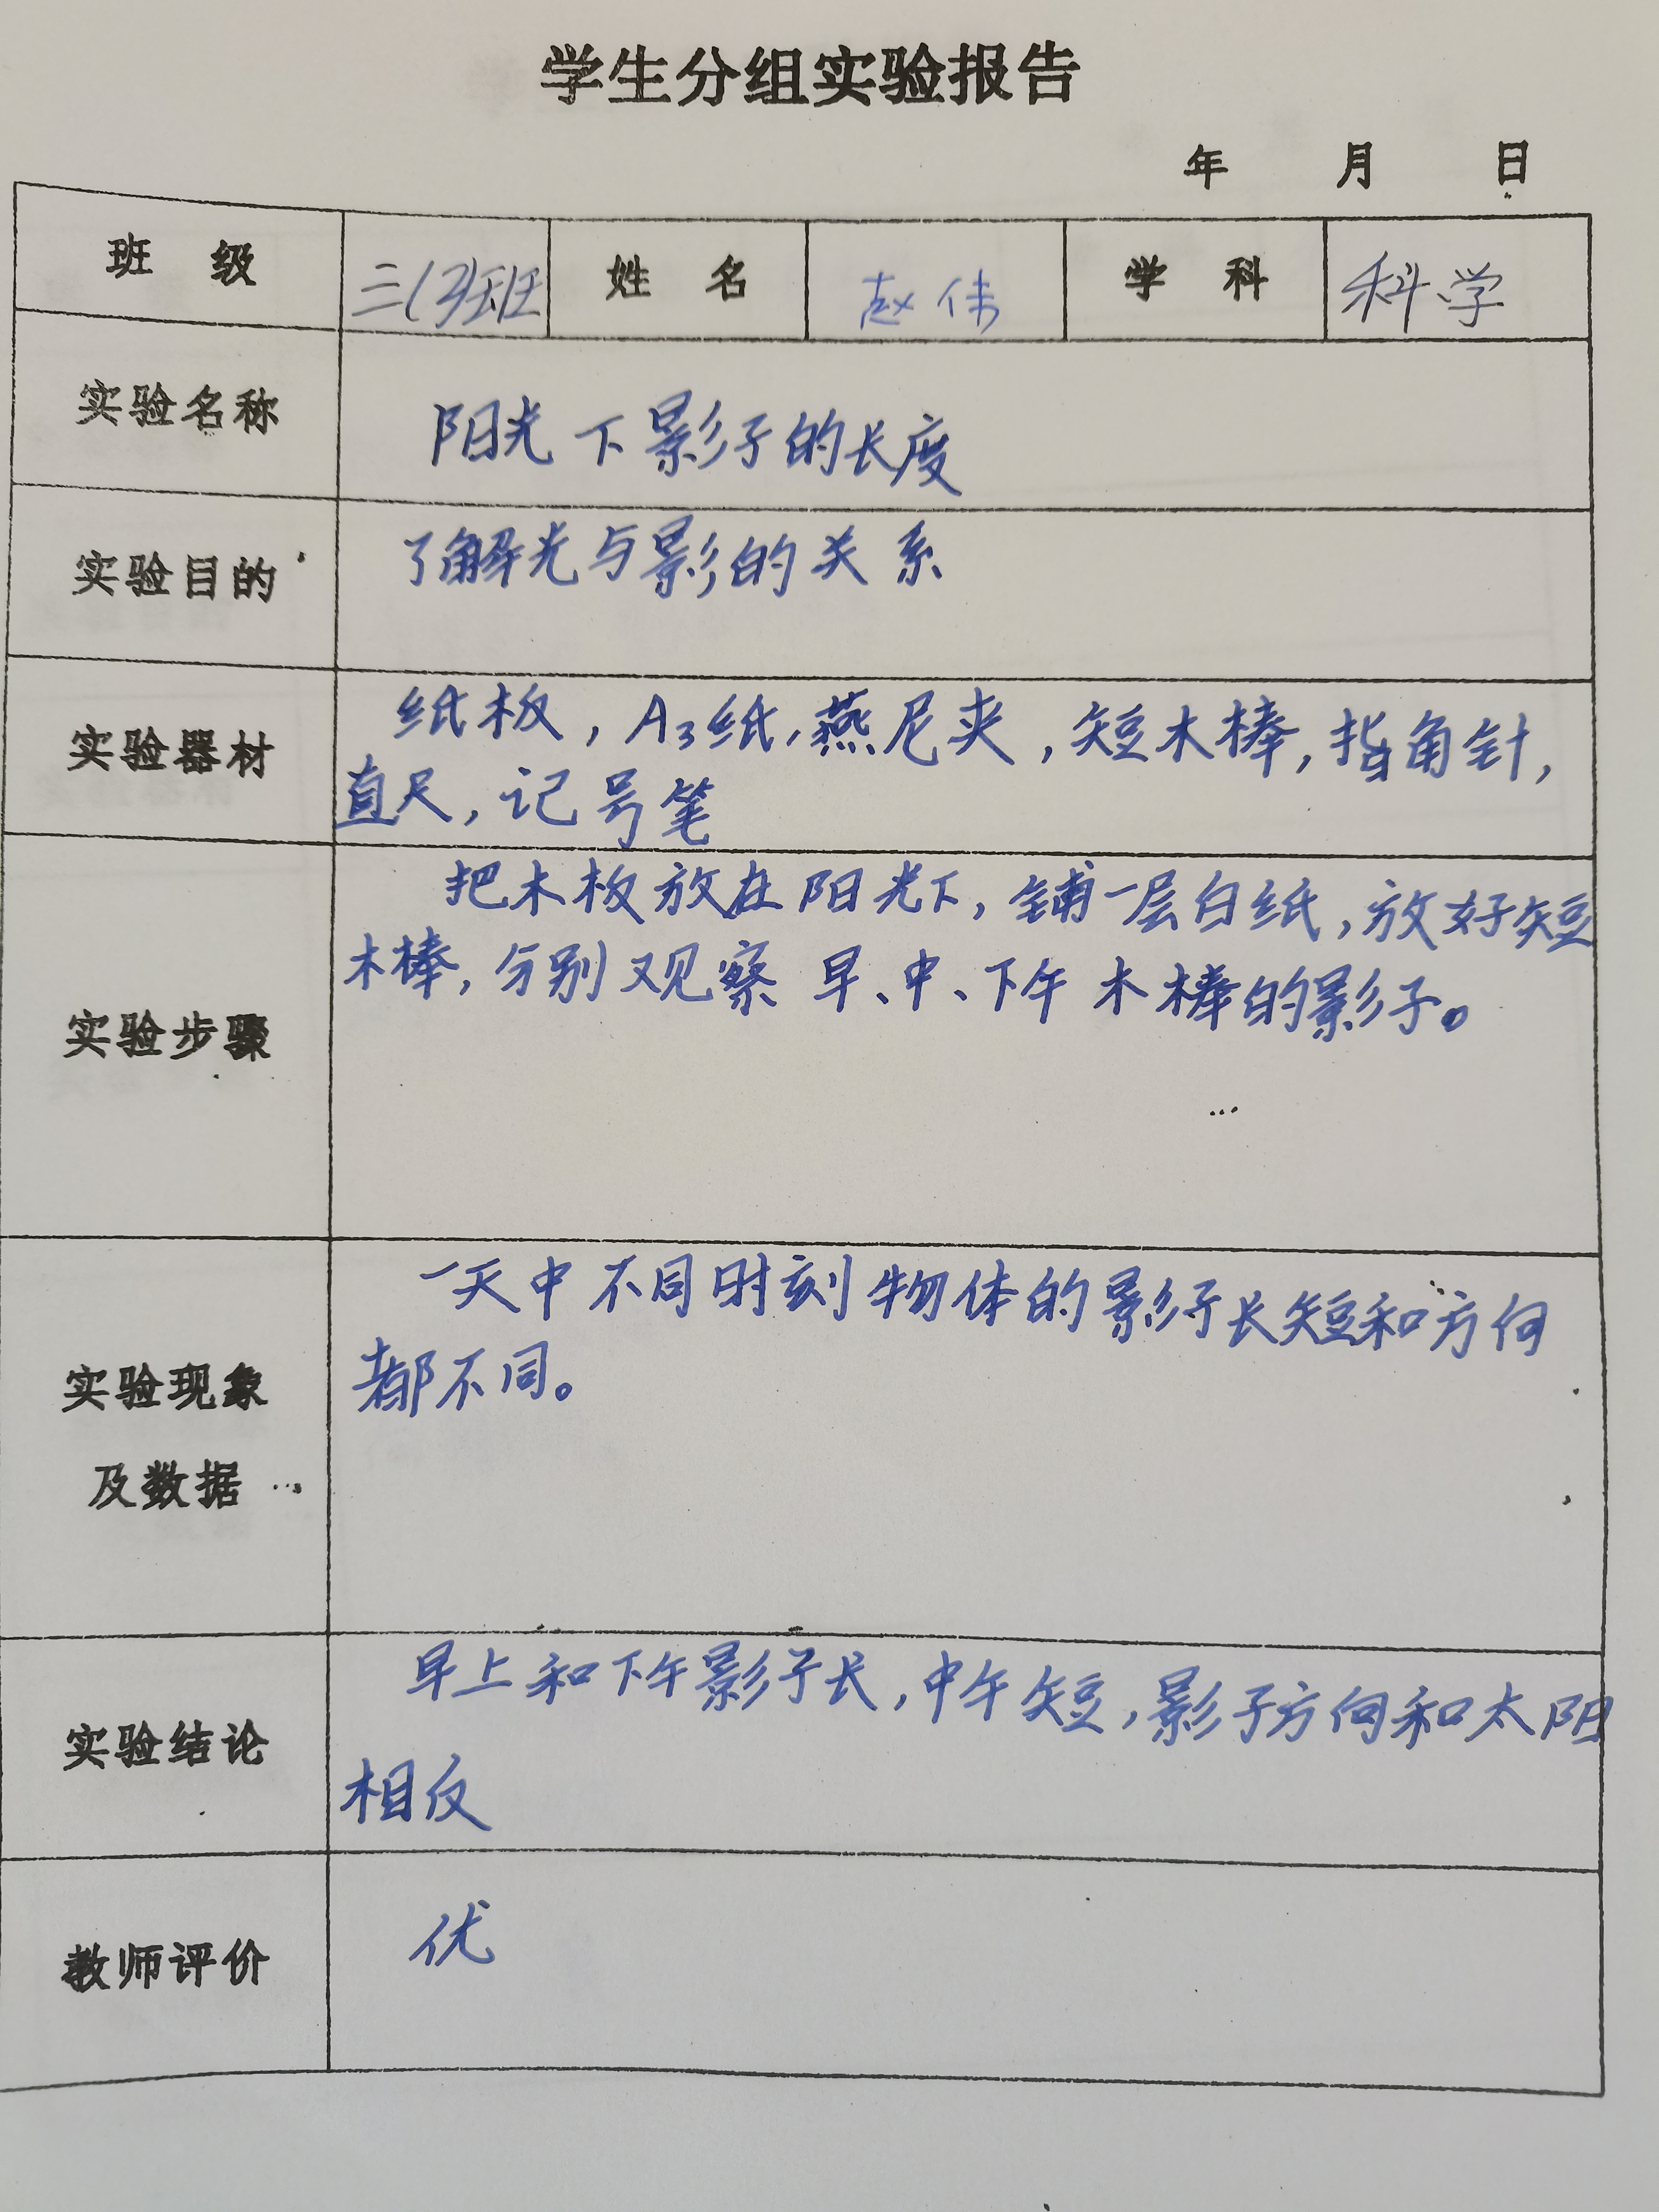 学生分组实验报告
年 月 日
班 级 三(3)班 姓 名 赵伟 学 科 科学
实验名称 阳光下影子的长度
实验目的 了解光与影的关系
实验器材 纸板，A3纸，燕尼夹，短木棒，指角针，
直尺，记号笔
实验步骤 把木板放在阳光下，铺一层白纸，放好短
木棒，分别观察 早、中、下午 木棒的影子。
实验现象 一天中不同时刻物体的影子长短和方向
都不同。
及数据
实验结论 早上和下午影子长，中午短，影子方向和太阳
相反
教师评价 优